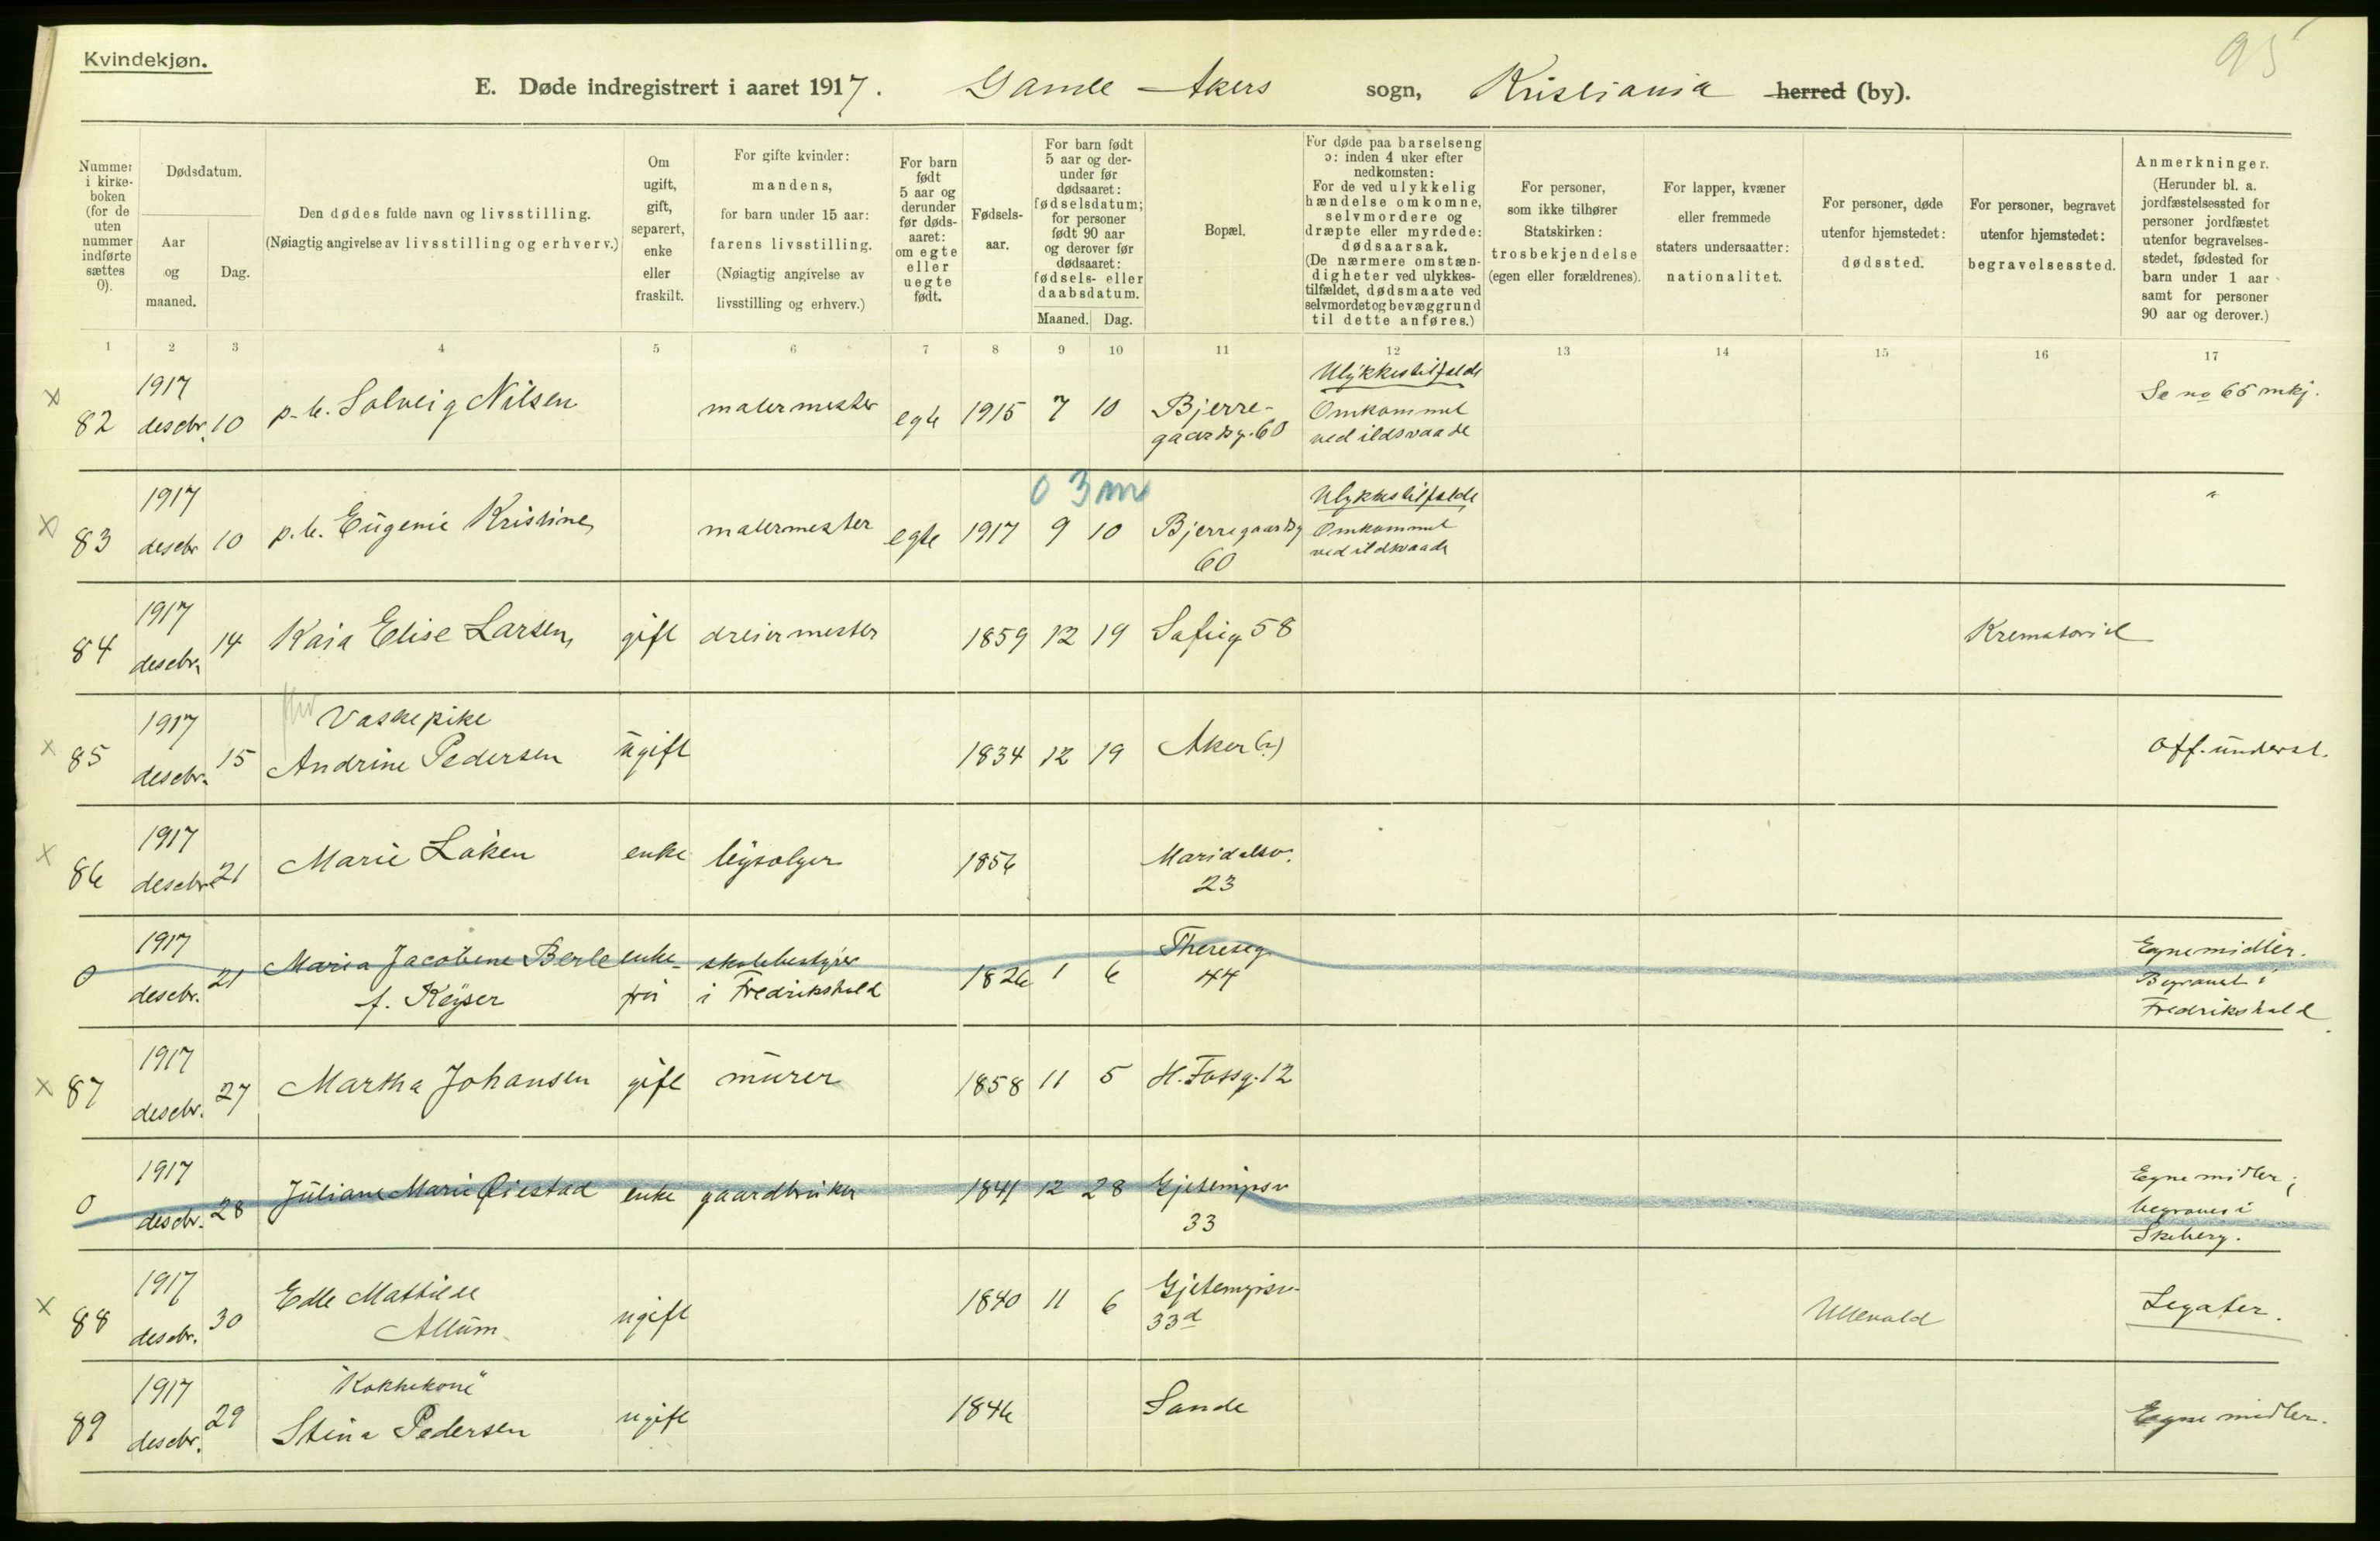 95
Kvindekjøn.
E. Døde indregistrert i aaret 1917. Gamle Akers sogn, Kristiania herred (by).
Nummer i kirke-boken (for de uten nummer indførte sættes 0).
Dødsdatum.
Aar og maaned.
Dag.
Den dødes fulde navn og livsstilling.
(Nøiagtig angivelse av livsstilling og erhverv.)
Om ugift, gift, separert, enke eller fraskilt.
For gifte kvinder: mandens, for barn under 15 aar: farens livsstilling. (Nøiagtig angivelse av livsstilling og erhverv.)
For barn født 5 aar og derunder før døds-aaret: om egte eller uegte født.
Fødsels-aar.
For barn født 5 aar og der-under før dødsaaret: fødselsdatum; for personer født 90 aar og derover før dødsaaret: fødsels- eller daabsdatum.
Maaned. Dag.
Bopæl.
For døde paa barselseng ɔ: inden 4 uker efter nedkomsten: For de ved ulykkelig hændelse omkomne, selvmordere og dræpte eller myrdede: dødsaarsak. (De nærmere omstæn-digheter ved ulykkes-tilfældet, dødsmaate ved selvmordet og bevæggrund til dette anføres.)
For personer, som ikke tilhører Statskirken: trosbekjendelse (egen eller forældrenes).
For lapper, kvæner eller fremmede staters undersaatter: nationalitet.
For personer, døde utenfor hjemstedet: dødssted.
For personer, begravet utenfor hjemstedet: begravelsessted.
Anmerkninger. (Herunder bl. a. jordfæstelsessted for personer jordfæstet utenfor begravelses-stedet, fødested for barn under 1 aar samt for personer 90 aar og derover.)
1 2 3 4 5 6 7 8 9 10 11 12 13 14 15 16 17
x 82 1917 desebr. 10 p.b. Solveig Nilsen malermester egte 1915 7 10 Bjerre-gaardsg. 60 Ulykkestilfælde Omkommet ved ildsvaade Se no 65 mkj.
0 3 m
x 83 1917 desebr 10 p.b. Eugenie Kristine, malermester egte 1917 9 10 Bjerregaardsg 60 Ulykkestilfælde Omkommet ved ildsvaade "
84 1917 desebr. 14 Kaia Elise Larsen, gift dreiermester 1859 12 19 Sofieg. 58 Krematoriet
x 85 1917 desebr. 15 Vaskepike Andrine Pedersen ugift 1834 12 19 Aker (?) Off. underst.
x 86 1917 desebr. 21 Marie Løken enke 1856 Maridalsv. 23
0 1917 desebr. 21 Maria Jacobine Berle f. Keyser enke-fru skolebestyrer i Fredrikshald 1826 1 6 Thereseg. 44 Egne midler. Begravet i Fredrikshald
x 87 1917 desebr. 27 Martha Johansen gift murer 1858 11 5 H. Fossg. 12
0 1917 desebr. 28 Juliane Marie Øiestad enke gaardbruker 1841 12 28 Gjetemyrsv 33 Egne midler; begraves i Skeberg.
x 88 1917 desebr. 30 Edle Mathilde Allum ugift 1840 11 6 Gjetemyrsv. 33d Ullevald Legater.
89 1917 desebr. 29 "Kokkekone" Stina Pedersen ugift 1846 Sande Egne midler.